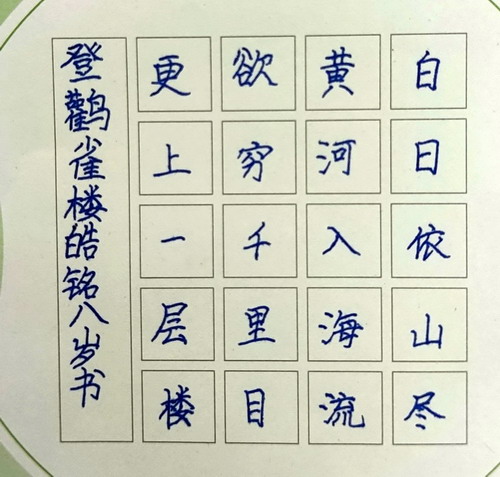 白日依山尽
黄河入海流
欲穷千里目
更上一层楼
登鹳雀楼皓铭八岁书